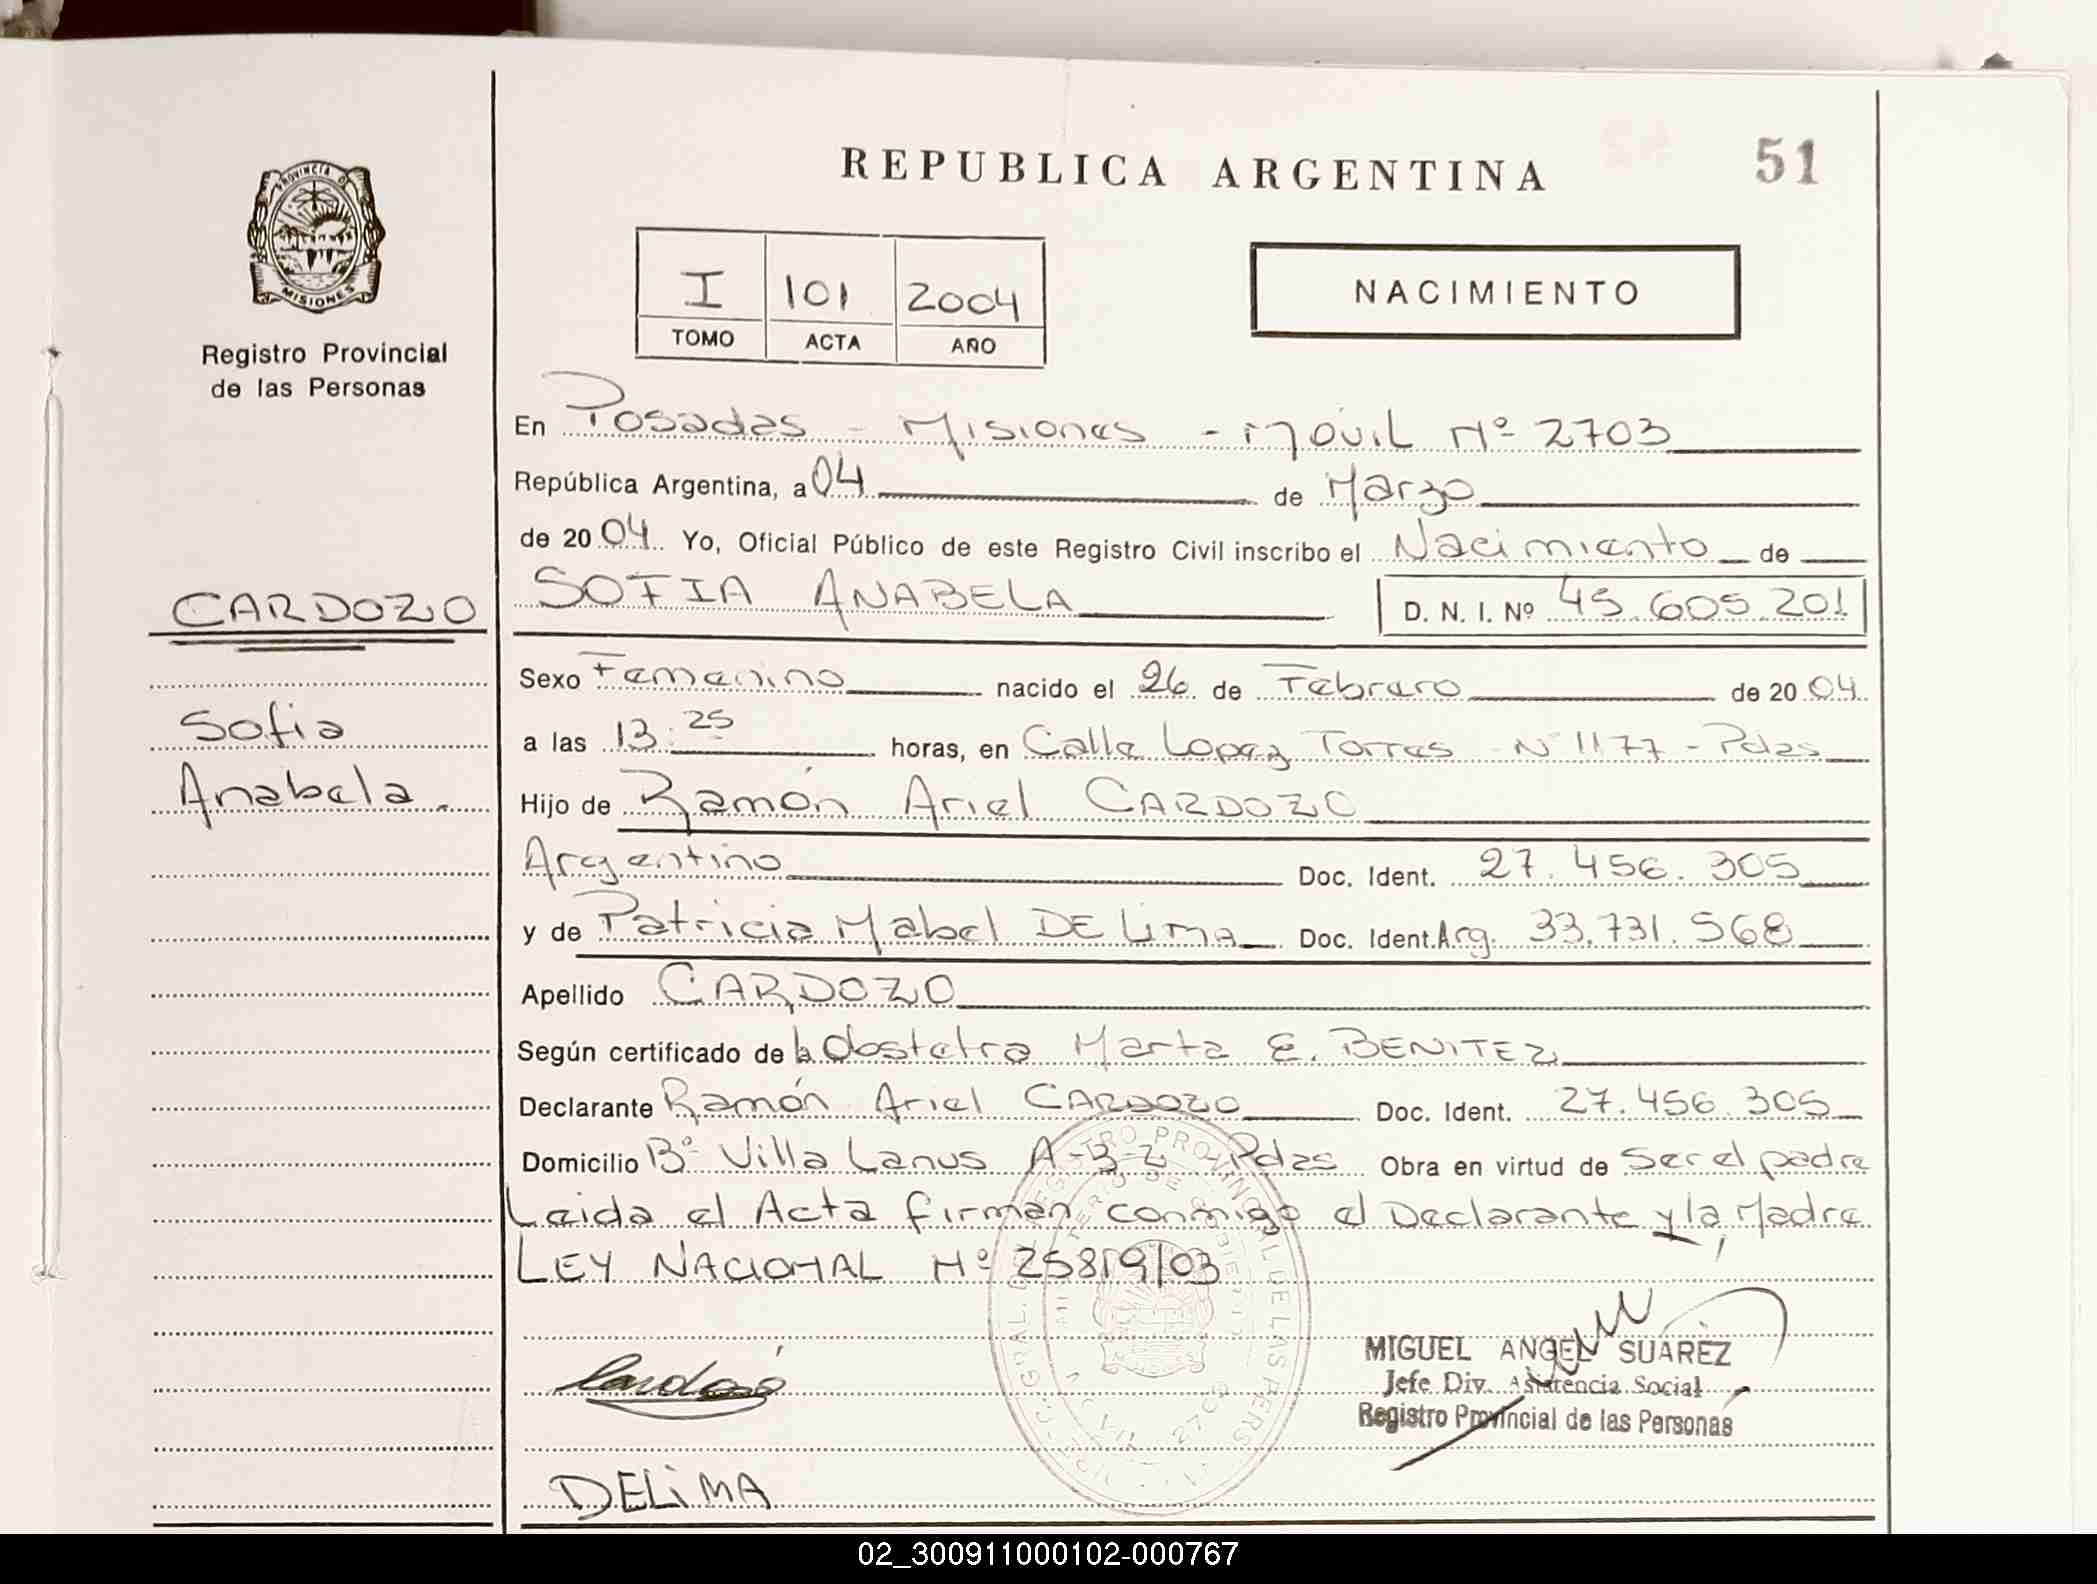 REPUBLICA ARGENTINA
51
PROVINCIA DE
MISIONES
Registro Provincial
de las Personas
I 101 2004
TOMO ACTA AÑO
NACIMIENTO
En Posadas - Misiones - Móvil Nº 2703
República Argentina, a 04 de Marzo
de 2004 Yo, Oficial Público de este Registro Civil inscribo el Nacimiento de
CARDOZO
SOFIA ANABELA D. N. I. Nº 45.605.201
Sexo Femenino nacido el 26 de Febrero de 2004
Sofia
a las 13:25 horas, en Calle Lopez Torres Nº 1177 - Pdas
Anabela.
Hijo de Ramón Ariel CARDOZO
Argentino Doc. Ident. 27.456.305
y de Patricia Mabel DE LIMA Doc. Ident. Arg. 33.731.568
Apellido CARDOZO
Según certificado de la Obstetra Marta E. BENITEZ
Declarante Ramón Ariel CARDOZO Doc. Ident. 27.456.305
Domicilio Bº Villa Lanus A-3-2 - Pdas Obra en virtud de Ser el padre
Leida el Acta firman conmigo el Declarante y la Madre
LEY NACIONAL Nº 25819/03
Cardozo
MIGUEL ANGEL SUAREZ
Jefe Div. Asistencia Social
Registro Provincial de las Personas
DELiMA
02_300911000102-000767